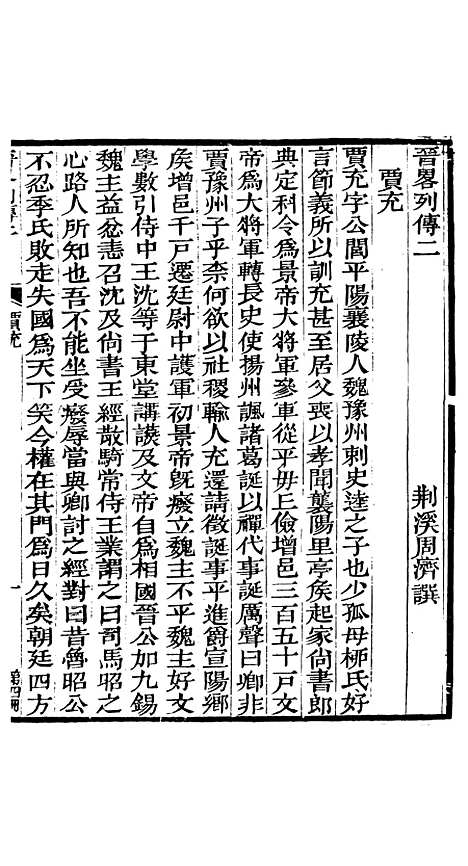 晉畧列傳二
荆溪周濟譔
賈充
賈充字公閭平陽襄陵人魏豫州刺史逵之子也少孤母柳氏好
言節義所以訓充甚至居父喪以孝聞襲陽里亭矦起家尙書郎
典定科令爲景帝大將軍參軍從平毋丘儉增邑三百五十戸文
帝爲大將軍轉長史使揚州諷諸葛誕以禪代事誕厲聲曰卿非
賈豫州子乎柰何欲以社稷輸人充還請徵誕事平進爵宣陽鄉
矦增邑千戸遷廷尉中護軍初景帝旣廢立魏主不平魏主好文
學數引侍中王沈等于東堂講讌及文帝自爲相國晉公加九錫
魏主益忿恚召沈及尙書王經散騎常侍王業謂之曰司馬昭之
心路人所知也吾不能坐受廢辱當與卿討之經對曰昔魯昭公
不忍季氏敗走失國爲天下笑今權在其門爲日久矣朝廷四方
賈充
一
第四冊